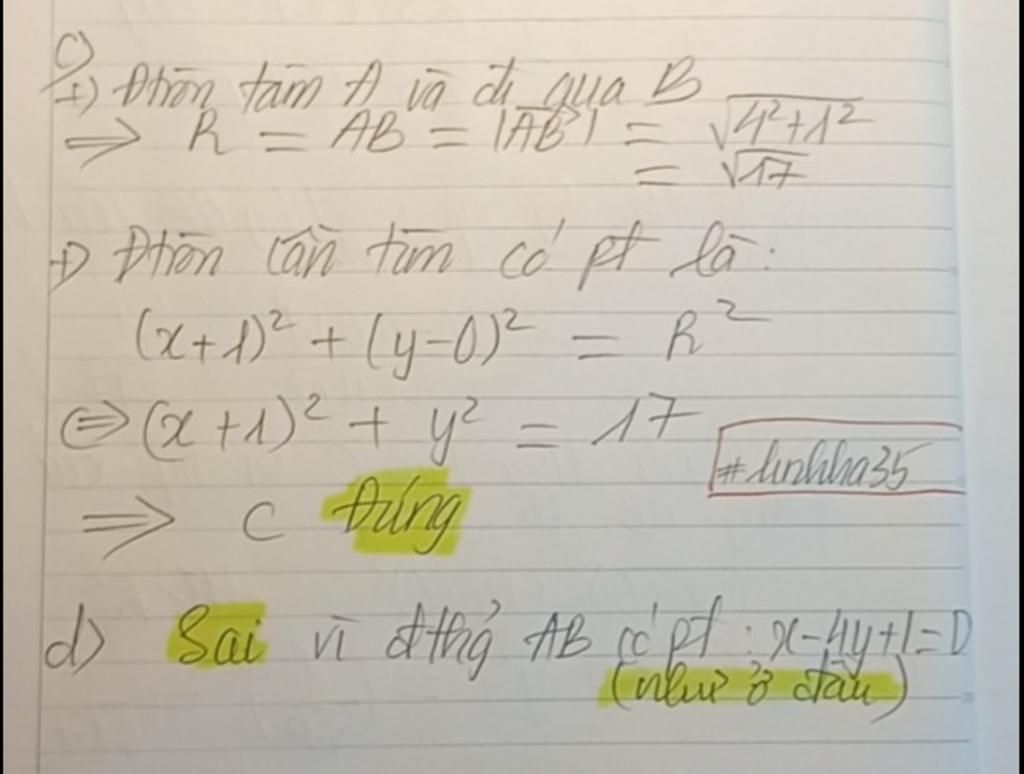 c)
+) Đtròn tâm A và đi qua B
⇒ R = AB = |AB| = √4²+1²
= √17
+) Đtròn cần tìm có pt là:
(x+1)² + (y-0)² = R²
⇔ (x+1)² + y² = 17
#linhha35
⇒ C Đúng
d) Sai vì đthg AB có pt : x-4y+1=0
(như ở đầu)